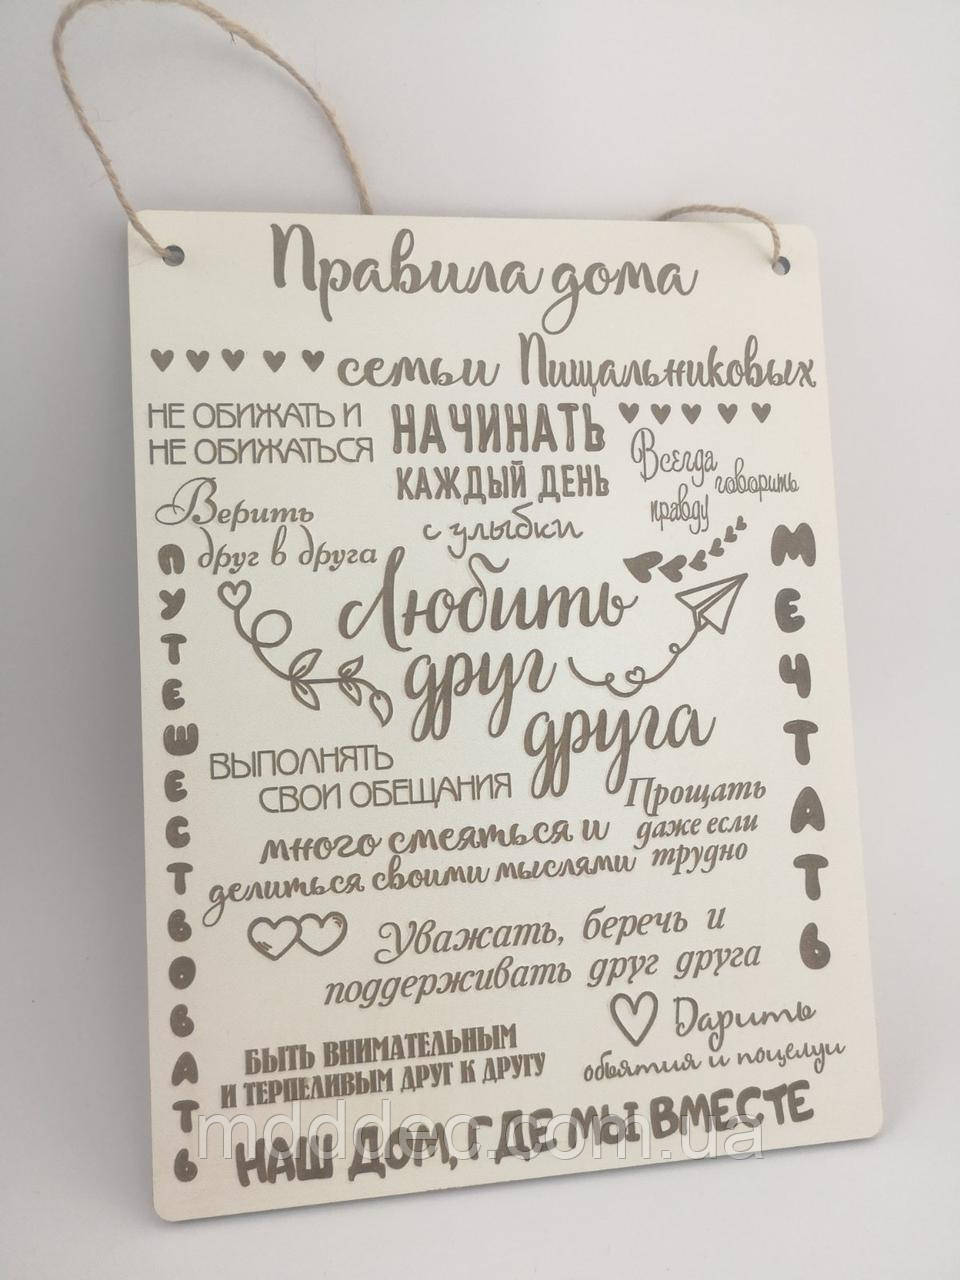 Правила дома
семьи Пищальниковых
НЕ ОБИЖАТЬ И
НЕ ОБИЖАТЬСЯ
НАЧИНАТЬ
КАЖДЫЙ ДЕНЬ
с улыбки
Всегда
говорить
правду
Верить
друг в друга
ПУТЕШЕСТВОВАТЬ
Любить
друг
друга
МЕЧТАТЬ
ВЫПОЛНЯТЬ
СВОИ ОБЕЩАНИЯ
Прощать
даже если
трудно
много смеяться и
делиться своими мыслями
Уважать, беречь и
поддерживать друг друга
Дарить
объятия и поцелуи
БЫТЬ ВНИМАТЕЛЬНЫМ
И ТЕРПЕЛИВЫМ ДРУГ К ДРУГУ
НАШ ДОМ, ГДЕ МЫ ВМЕСТЕ
mdddec.com.ua